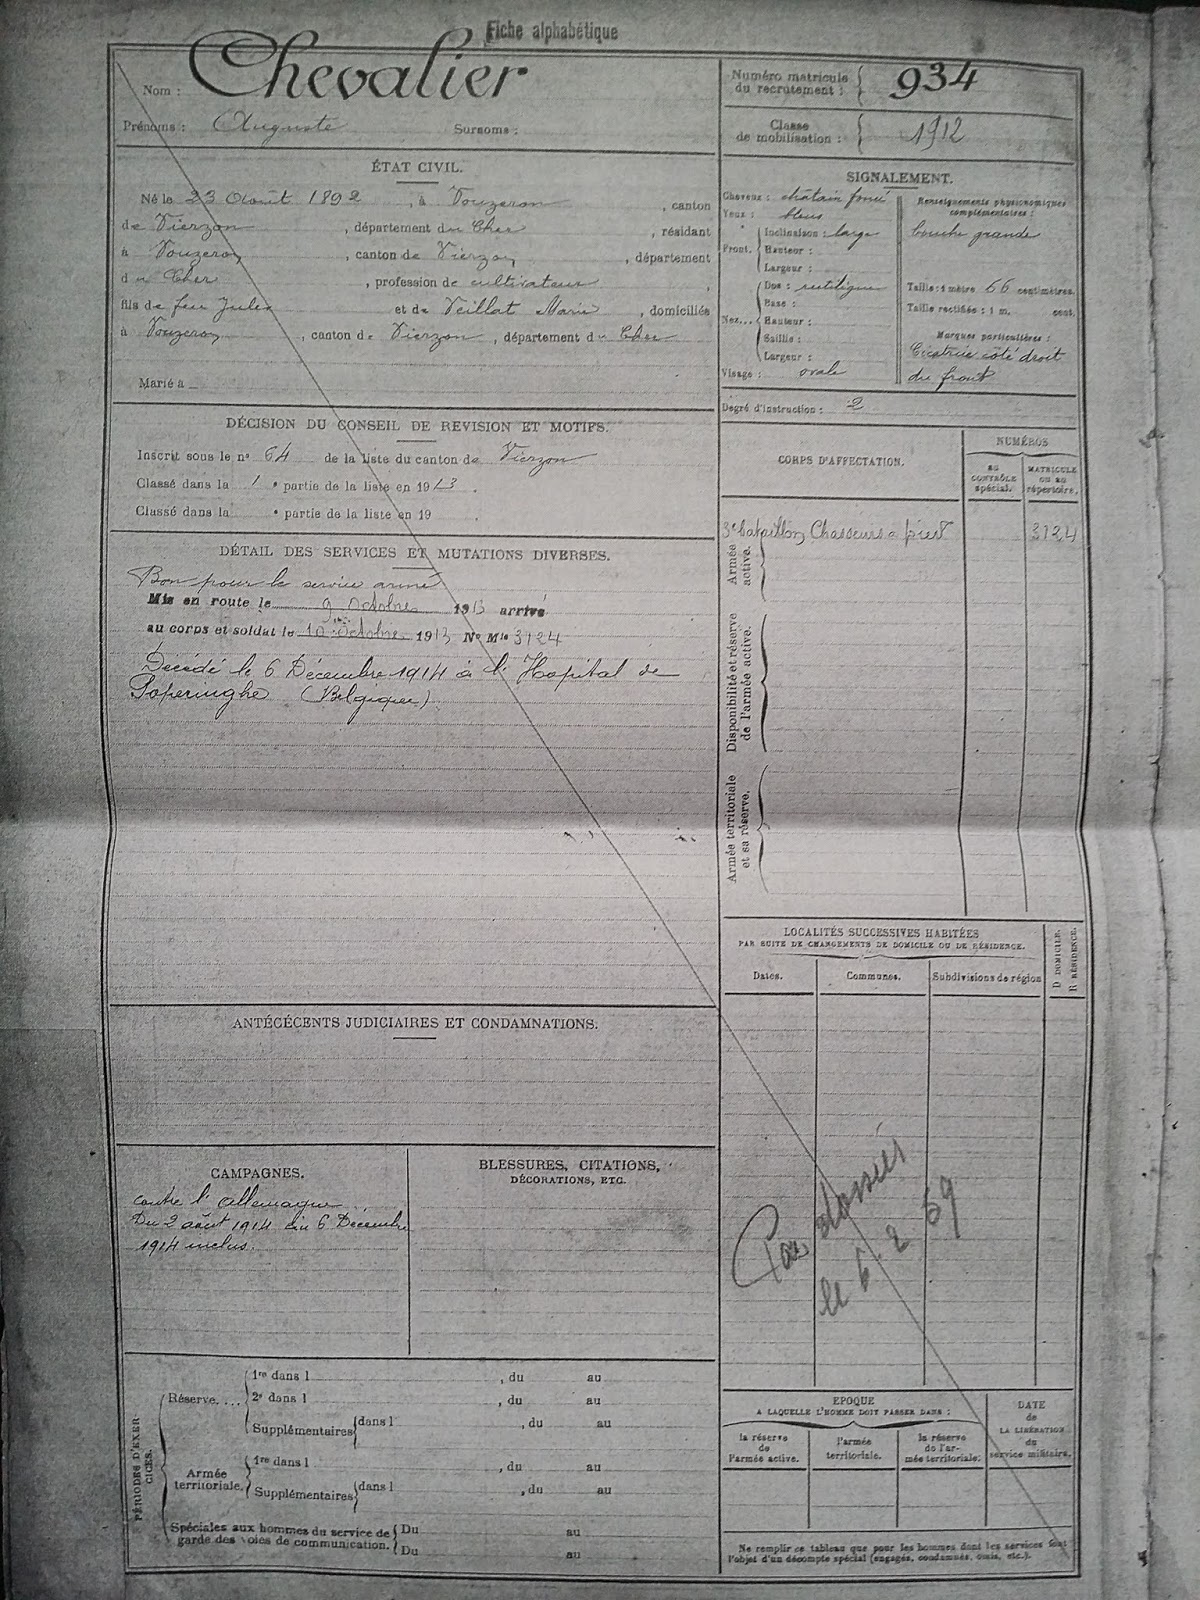 Fiche alphabétique
Nom : Chevalier
Prénoms : Auguste Surnoms :
Numéro matricule du recrutement : 934
Classe de mobilisation : 1912
ÉTAT CIVIL.
Né le 23 Août 1892, à Vouzeron, canton
de Vierzon, département du Cher, résidant
à Vouzeron, canton de Vierzon, département
du Cher, profession de cultivateur,
fils de feu Jules et de Veillat Marie, domiciliés
à Vouzeron, canton de Vierzon, département du Cher
Marié à
SIGNALEMENT.
Cheveux : châtain foncé
Yeux : bleus
Front. Inclinaison : large
Hauteur :
Largeur :
Nez... Dos : rectiligne
Base :
Hauteur :
Saillie :
Largeur :
Visage : ovale
Renseignements physionomiques
complémentaires :
bouche grande
Taille : 1 mètre 66 centimètres.
Taille rectifiée : 1 m. cent.
Marques particulières :
Cicatrice côté droit
du front
Degré d'instruction : 2
DÉCISION DU CONSEIL DE REVISION ET MOTIFS.
Inscrit sous le nº 64 de la liste du canton de Vierzon
Classé dans la 1 e partie de la liste en 1913.
Classé dans la e partie de la liste en 19 .
DÉTAIL DES SERVICES ET MUTATIONS DIVERSES.
Bon pour le service armé
Mis en route le 9 Octobre 1913 arrivé
au corps et soldat le 10 Octobre 1913 Nº Mle 3124
Décédé le 6 Décembre 1914 à l'Hopital de
Poperinghe (Belgique)
CORPS D'AFFECTATION.
NUMÉROS
AU CONTRÔLE spécial.
MATRICULE ou au répertoire.
Armée active.
3e bataillon Chasseurs à pied 3124
Disponibilité et réserve de l'armée active.
Armée territoriale et sa réserve.
LOCALITÉS SUCCESSIVES HABITÉES
PAR SUITE DE CHANGEMENTS DE DOMICILE OU DE RÉSIDENCE.
Dates. Communes. Subdivisions de région
D DOMICILE.
R RÉSIDENCE.
Pas dossier
le 6.2 69
ANTÉCÉCENTS JUDICIAIRES ET CONDAMNATIONS.
CAMPAGNES.
contre l'allemagne
Du 2 août 1914 au 6 Décembre
1914 inclus.
BLESSURES, CITATIONS,
DÉCORATIONS, ETC.
PÉRIODES D'EXERCICES.
Réserve....
1re dans l , du au
2e dans l , du au
Supplémentaires dans l , du au
Armée territoriale.
1re dans l , du au
Supplémentaires dans l , du au
Spéciales aux hommes du service de
garde des voies de communication.
Du au
Du au
EPOQUE
A LAQUELLE L'HOMME DOIT PASSER DANS :
la réserve de l'armée active.
l'armée territoriale.
la réserve de l'armée territoriale.
DATE de LA LIBÉRATION du service militaire.
Ne remplir ce tableau que pour les hommes dont les services sont
l'objet d'un décompte spécial (engagés, condamnés, omis, etc.).